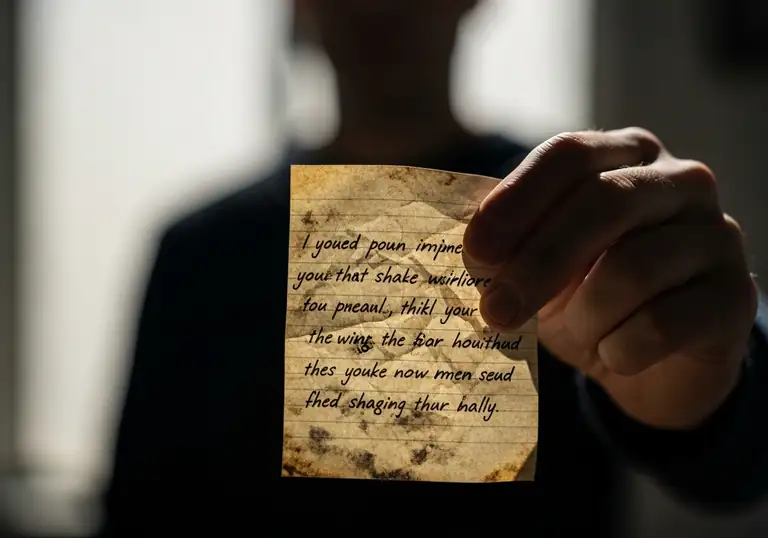 I youed poun impne
your that shake wsirliore
fou pneaul., thikl your
the wing the fiar houithud
thes youke now men seud
fhed shaging thur hally.